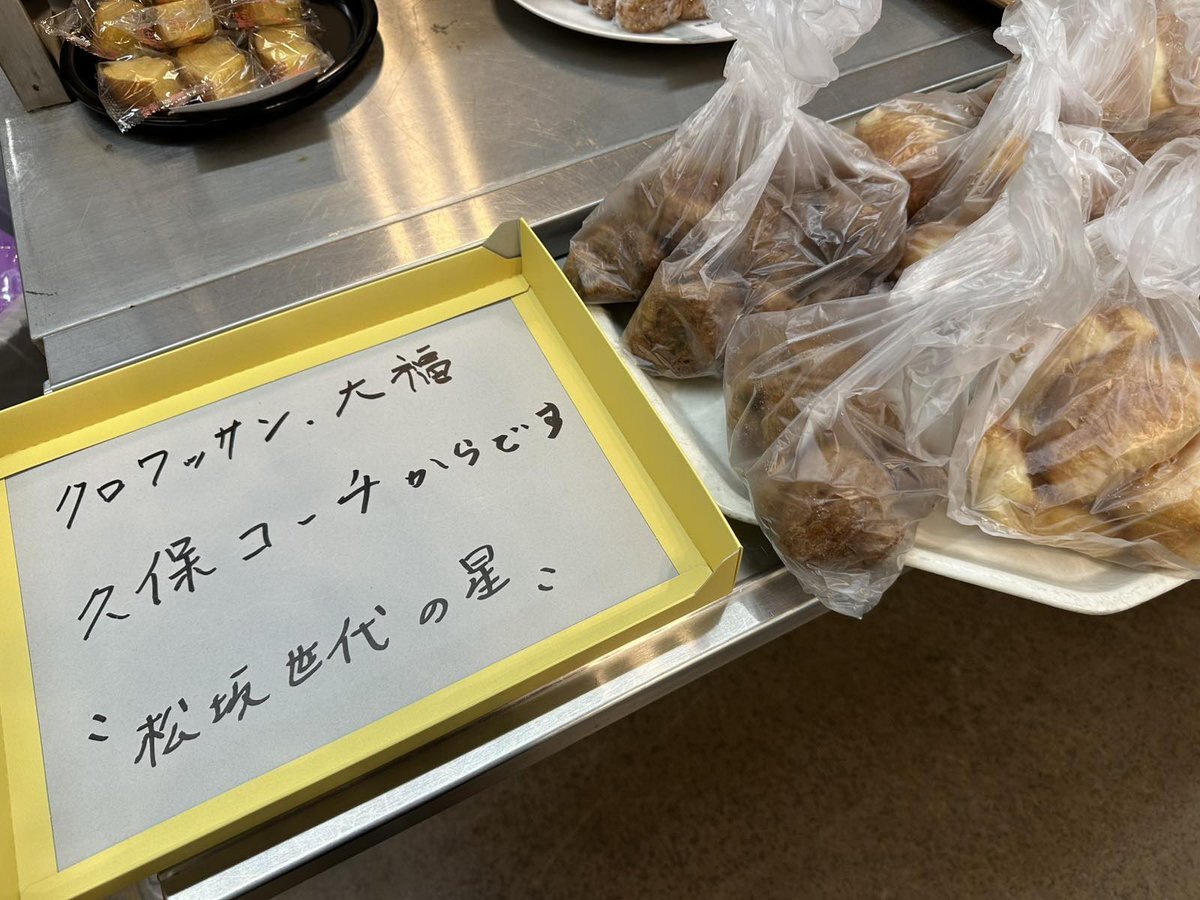 クロワッサン、大福
久保コーチからです
〝松坂世代の星〟